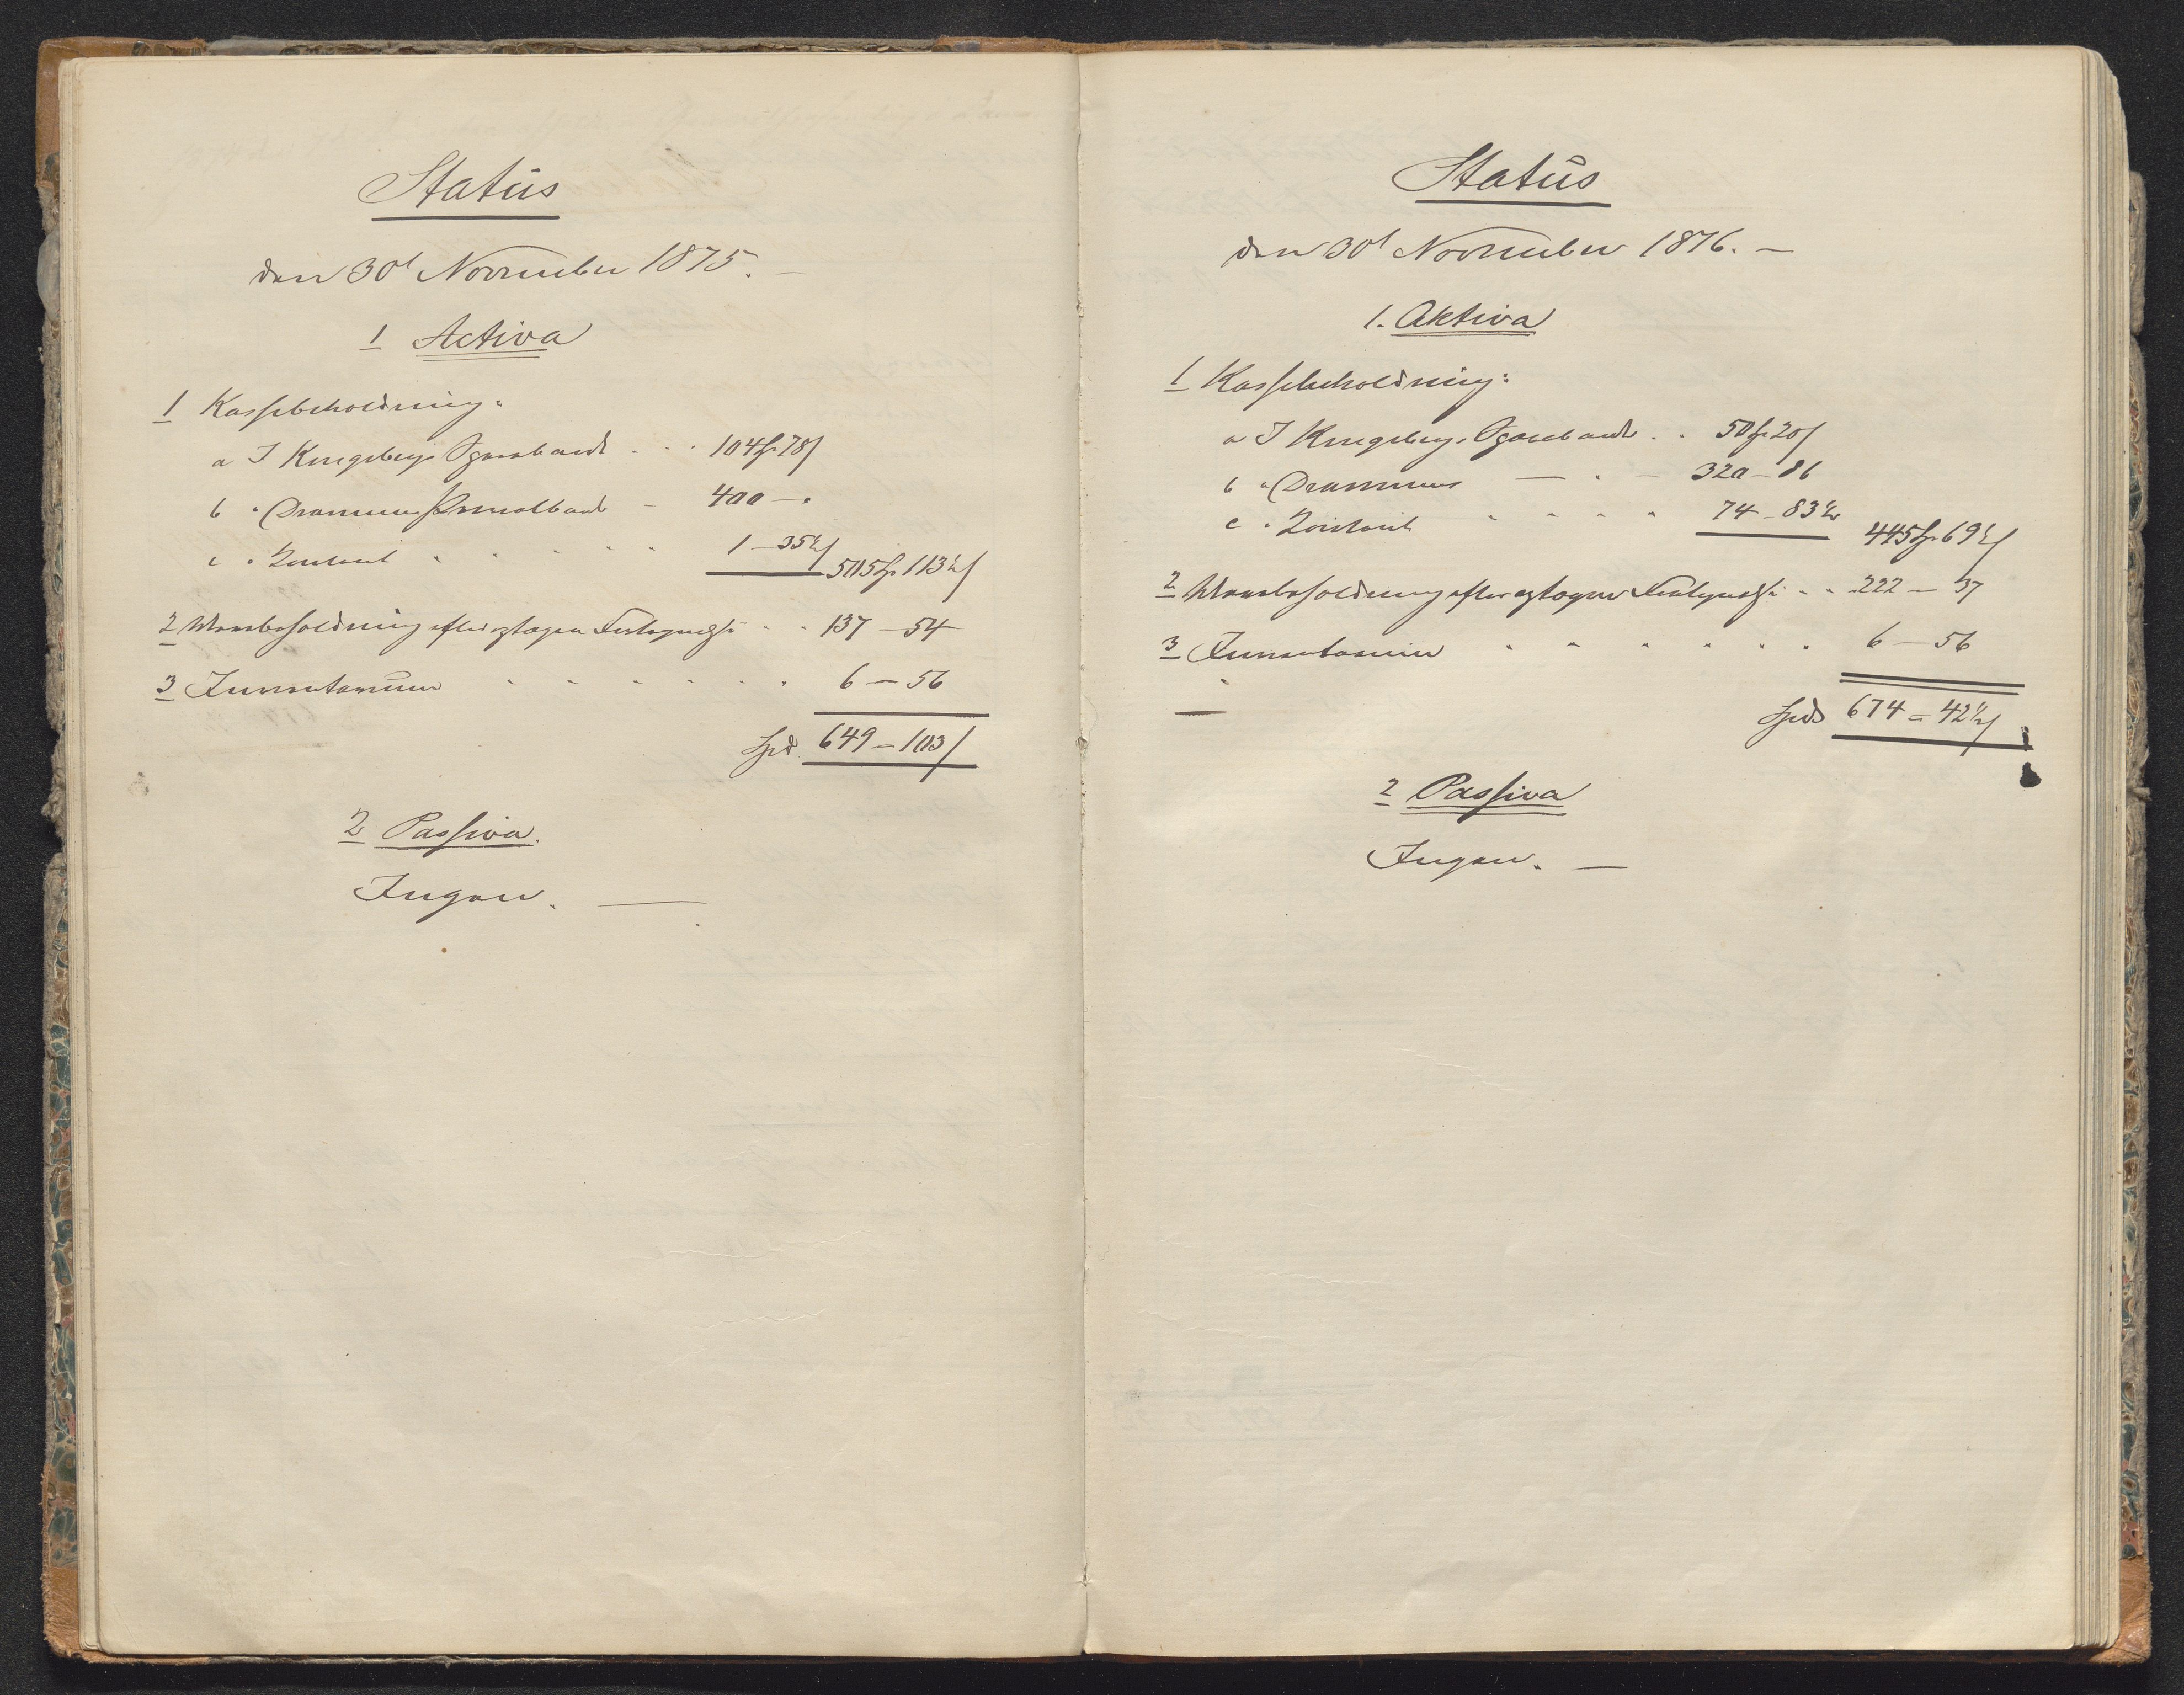 Status
den 30t November 1875. —
1 Activa
1 Kassebeholdning:
a I Kongsbergs Sparebank . . 104 Sp 78 s
b " Drammens Privatbank - 400 — "
c " Kontant " " " " " 1 — 35½ s 505 Sp 113½ s
2 Varebeholdning efter optagen Fortegnelse . . 137 — 54
3 Inventarium " " " " " " 6 — 56
Spd. 649 — 103 s
2 Passiva.
Ingen. —
Status
den 30t November 1876. —
1. Aktiva
1 Kassebeholdning:
a I Kongsbergs Sparebank . . 50 Sp 20 s
b " Drammens — " — 320 — 86
c " Kontant " " " " 74 — 83½ 445 Sp 69½ s
2 Varebeholdning efter optagen Fortegnelse . . 222 — 37
3 Inventarium " " " " " " 6 — 56
Spd 674 — 42½ s
2 Passiva
Ingen. —